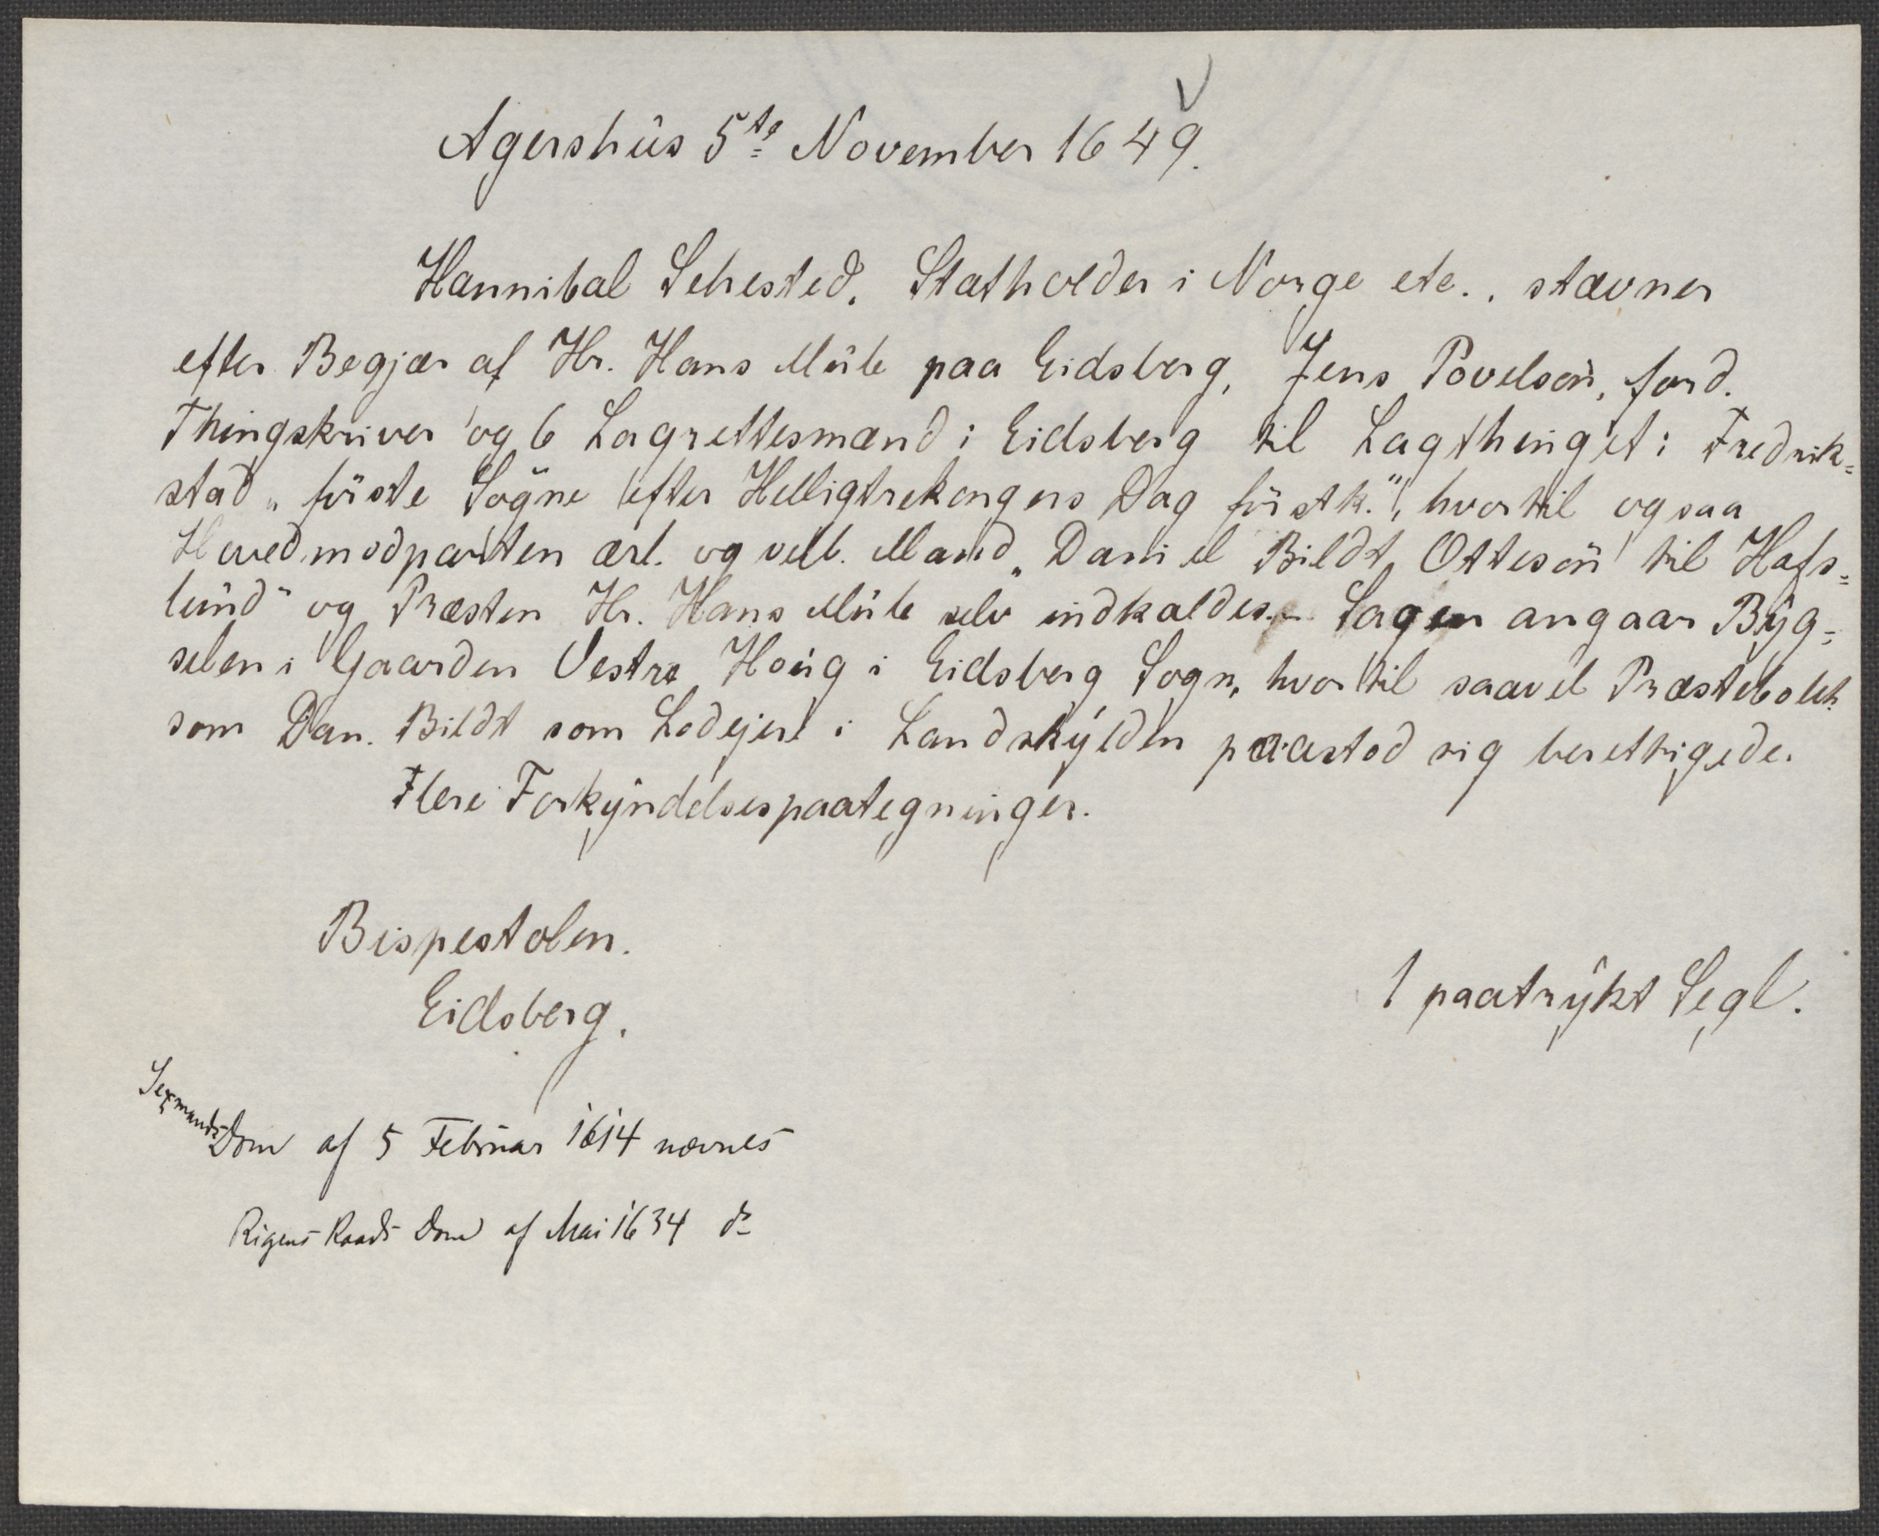 Agershus 5te November 1649.
Hannibal Sehested, Statholder i Norge etc., stævner
efter Begjær af Hr. Hans Mule paa Eidsberg, Jens Povelsön, ford.
Thingskriver og 6 Lagrettesmænd i Eidsberg til Lagthinget i Fredrik=
stad „förste Sögne efter Helligtrekongers Dag förstk.", hvortil ogsaa
Hovedmodparten ærl. og velb. Mand „Daniel Bildt Ottesön til Hafs=
lund" og Præsten Hr. Hans Mule selv indkaldes. – Sagen angaar Byg=
selen i Gaarden Vestre Houg i Eidsberg Sogn, hvortil saavel Præstebolet
som Dan. Bildt som Lodejere i Landskylden paastod sig berettigede.
Flere Forkyndelsespaategninger.
Bispestolen.
Eidsberg.
1 paatrykt Segl.
Sexmands Dom af 5 Februar 1614 nævnes
Rigens Raads Dom af Mai 1634 do